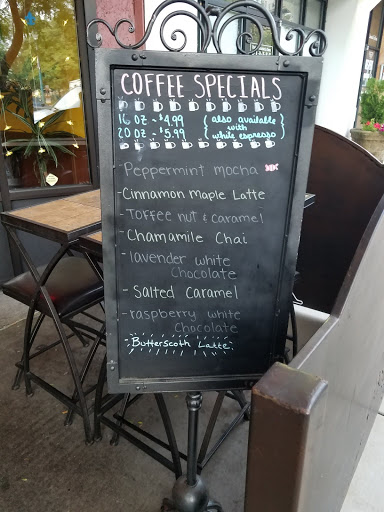 COFFEE SPECIALS
16 oz - $4.99 { also available
with
20 oz - $5.99 white espresso }
- Peppermint mocha
- Cinnamon Maple Latte
- Toffee nut & caramel
- Chamamile Chai
- lavender white
Chocolate
- Salted Caramel
- raspberry white
Chocolate
- Butterscoth Latte -